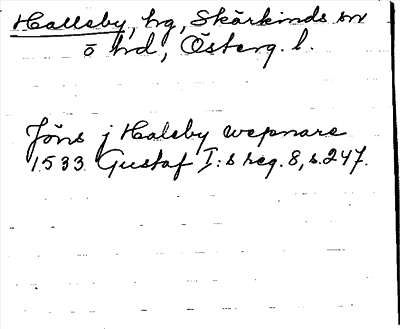 Hallsby, hg, Skärkinds sn
o hd, Österg. l.
Jöns j Halsby wepnare
1533 Gustaf I:s reg. 8, s. 247.